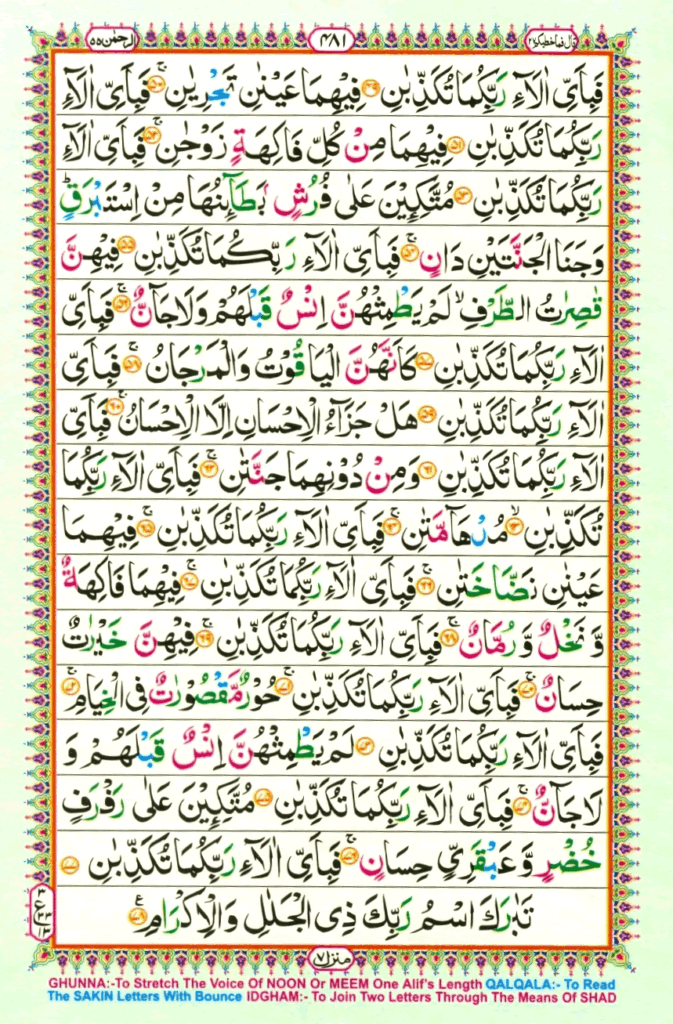 قال فما خطبكم ٢٧
٤٨١
الرحمن ٥٥
فَبِاَىِّ اٰلَآءِ رَبِّكُمَا تُكَذِّبٰنِ ﴿٤٩﴾ فِيْهِمَا عَيْنٰنِ تَجْرِيٰنِ ۚ ﴿٥٠﴾ فَبِاَىِّ اٰلَآءِ
رَبِّكُمَا تُكَذِّبٰنِ ﴿٥١﴾ فِيْهِمَا مِنْ كُلِّ فَاكِهَةٍ زَوْجٰنِ ۚ ﴿٥٢﴾ فَبِاَىِّ اٰلَآءِ
رَبِّكُمَا تُكَذِّبٰنِ ﴿٥٣﴾ مُتَّكِـِٕيْنَ عَلٰى فُرُشٍۭ بَطَآىِٕنُهَا مِنْ اِسْتَبْرَقٍ ؕ
وَجَنَا الْجَنَّتَيْنِ دَانٍ ۚ ﴿٥٤﴾ فَبِاَىِّ اٰلَآءِ رَبِّكُمَا تُكَذِّبٰنِ ﴿٥٥﴾ فِيْهِنَّ
قٰصِرٰتُ الطَّرْفِ ۙ لَمْ يَطْمِثْهُنَّ اِنْسٌ قَبْلَهُمْ وَلَا جَآنٌّ ۚ ﴿٥٦﴾ فَبِاَىِّ
اٰلَآءِ رَبِّكُمَا تُكَذِّبٰنِ ۚ ﴿٥٧﴾ كَاَنَّهُنَّ الْيَاقُوْتُ وَالْمَرْجَانُ ۚ ﴿٥٨﴾ فَبِاَىِّ
اٰلَآءِ رَبِّكُمَا تُكَذِّبٰنِ ﴿٥٩﴾ هَلْ جَزَآءُ الْاِحْسَانِ اِلَّا الْاِحْسَانُ ۚ ﴿٦٠﴾ فَبِاَىِّ
اٰلَآءِ رَبِّكُمَا تُكَذِّبٰنِ ﴿٦١﴾ وَمِنْ دُوْنِهِمَا جَنَّتٰنِ ۚ ﴿٦٢﴾ فَبِاَىِّ اٰلَآءِ رَبِّكُمَا
تُكَذِّبٰنِ ۙ ﴿٦٣﴾ مُدْهَآمَّتٰنِ ۚ ﴿٦٤﴾ فَبِاَىِّ اٰلَآءِ رَبِّكُمَا تُكَذِّبٰنِ ۚ ﴿٦٥﴾ فِيْهِمَا
عَيْنٰنِ نَضَّاخَتٰنِ ۚ ﴿٦٦﴾ فَبِاَىِّ اٰلَآءِ رَبِّكُمَا تُكَذِّبٰنِ ۚ ﴿٦٧﴾ فِيْهِمَا فَاكِهَةٌ
وَّ نَخْلٌ وَّ رُمَّانٌ ۚ ﴿٦٨﴾ فَبِاَىِّ اٰلَآءِ رَبِّكُمَا تُكَذِّبٰنِ ۚ ﴿٦٩﴾ فِيْهِنَّ خَيْرٰتٌ
حِسَانٌ ۚ ﴿٧٠﴾ فَبِاَىِّ اٰلَآءِ رَبِّكُمَا تُكَذِّبٰنِ ۚ ﴿٧١﴾ حُوْرٌ مَّقْصُوْرٰتٌ فِى الْخِيَامِ ۚ ﴿٧٢﴾
فَبِاَىِّ اٰلَآءِ رَبِّكُمَا تُكَذِّبٰنِ ۚ ﴿٧٣﴾ لَمْ يَطْمِثْهُنَّ اِنْسٌ قَبْلَهُمْ وَ
لَا جَآنٌّ ۚ ﴿٧٤﴾ فَبِاَىِّ اٰلَآءِ رَبِّكُمَا تُكَذِّبٰنِ ۚ ﴿٧٥﴾ مُتَّكِـِٕيْنَ عَلٰى رَفْرَفٍ
خُضْرٍ وَّ عَبْقَرِىٍّ حِسَانٍ ۚ ﴿٧٦﴾ فَبِاَىِّ اٰلَآءِ رَبِّكُمَا تُكَذِّبٰنِ ﴿٧٧﴾
تَبٰرَكَ اسْمُ رَبِّكَ ذِى الْجَلٰلِ وَالْاِكْرَامِ ﴿٧٨﴾ ع
٣
ع
٣٣
١٣
منزل ٧
GHUNNA:-To Stretch The Voice Of NOON Or MEEM One Alif's Length QALQALA:- To Read
The SAKIN Letters With Bounce IDGHAM:- To Join Two Letters Through The Means Of SHAD